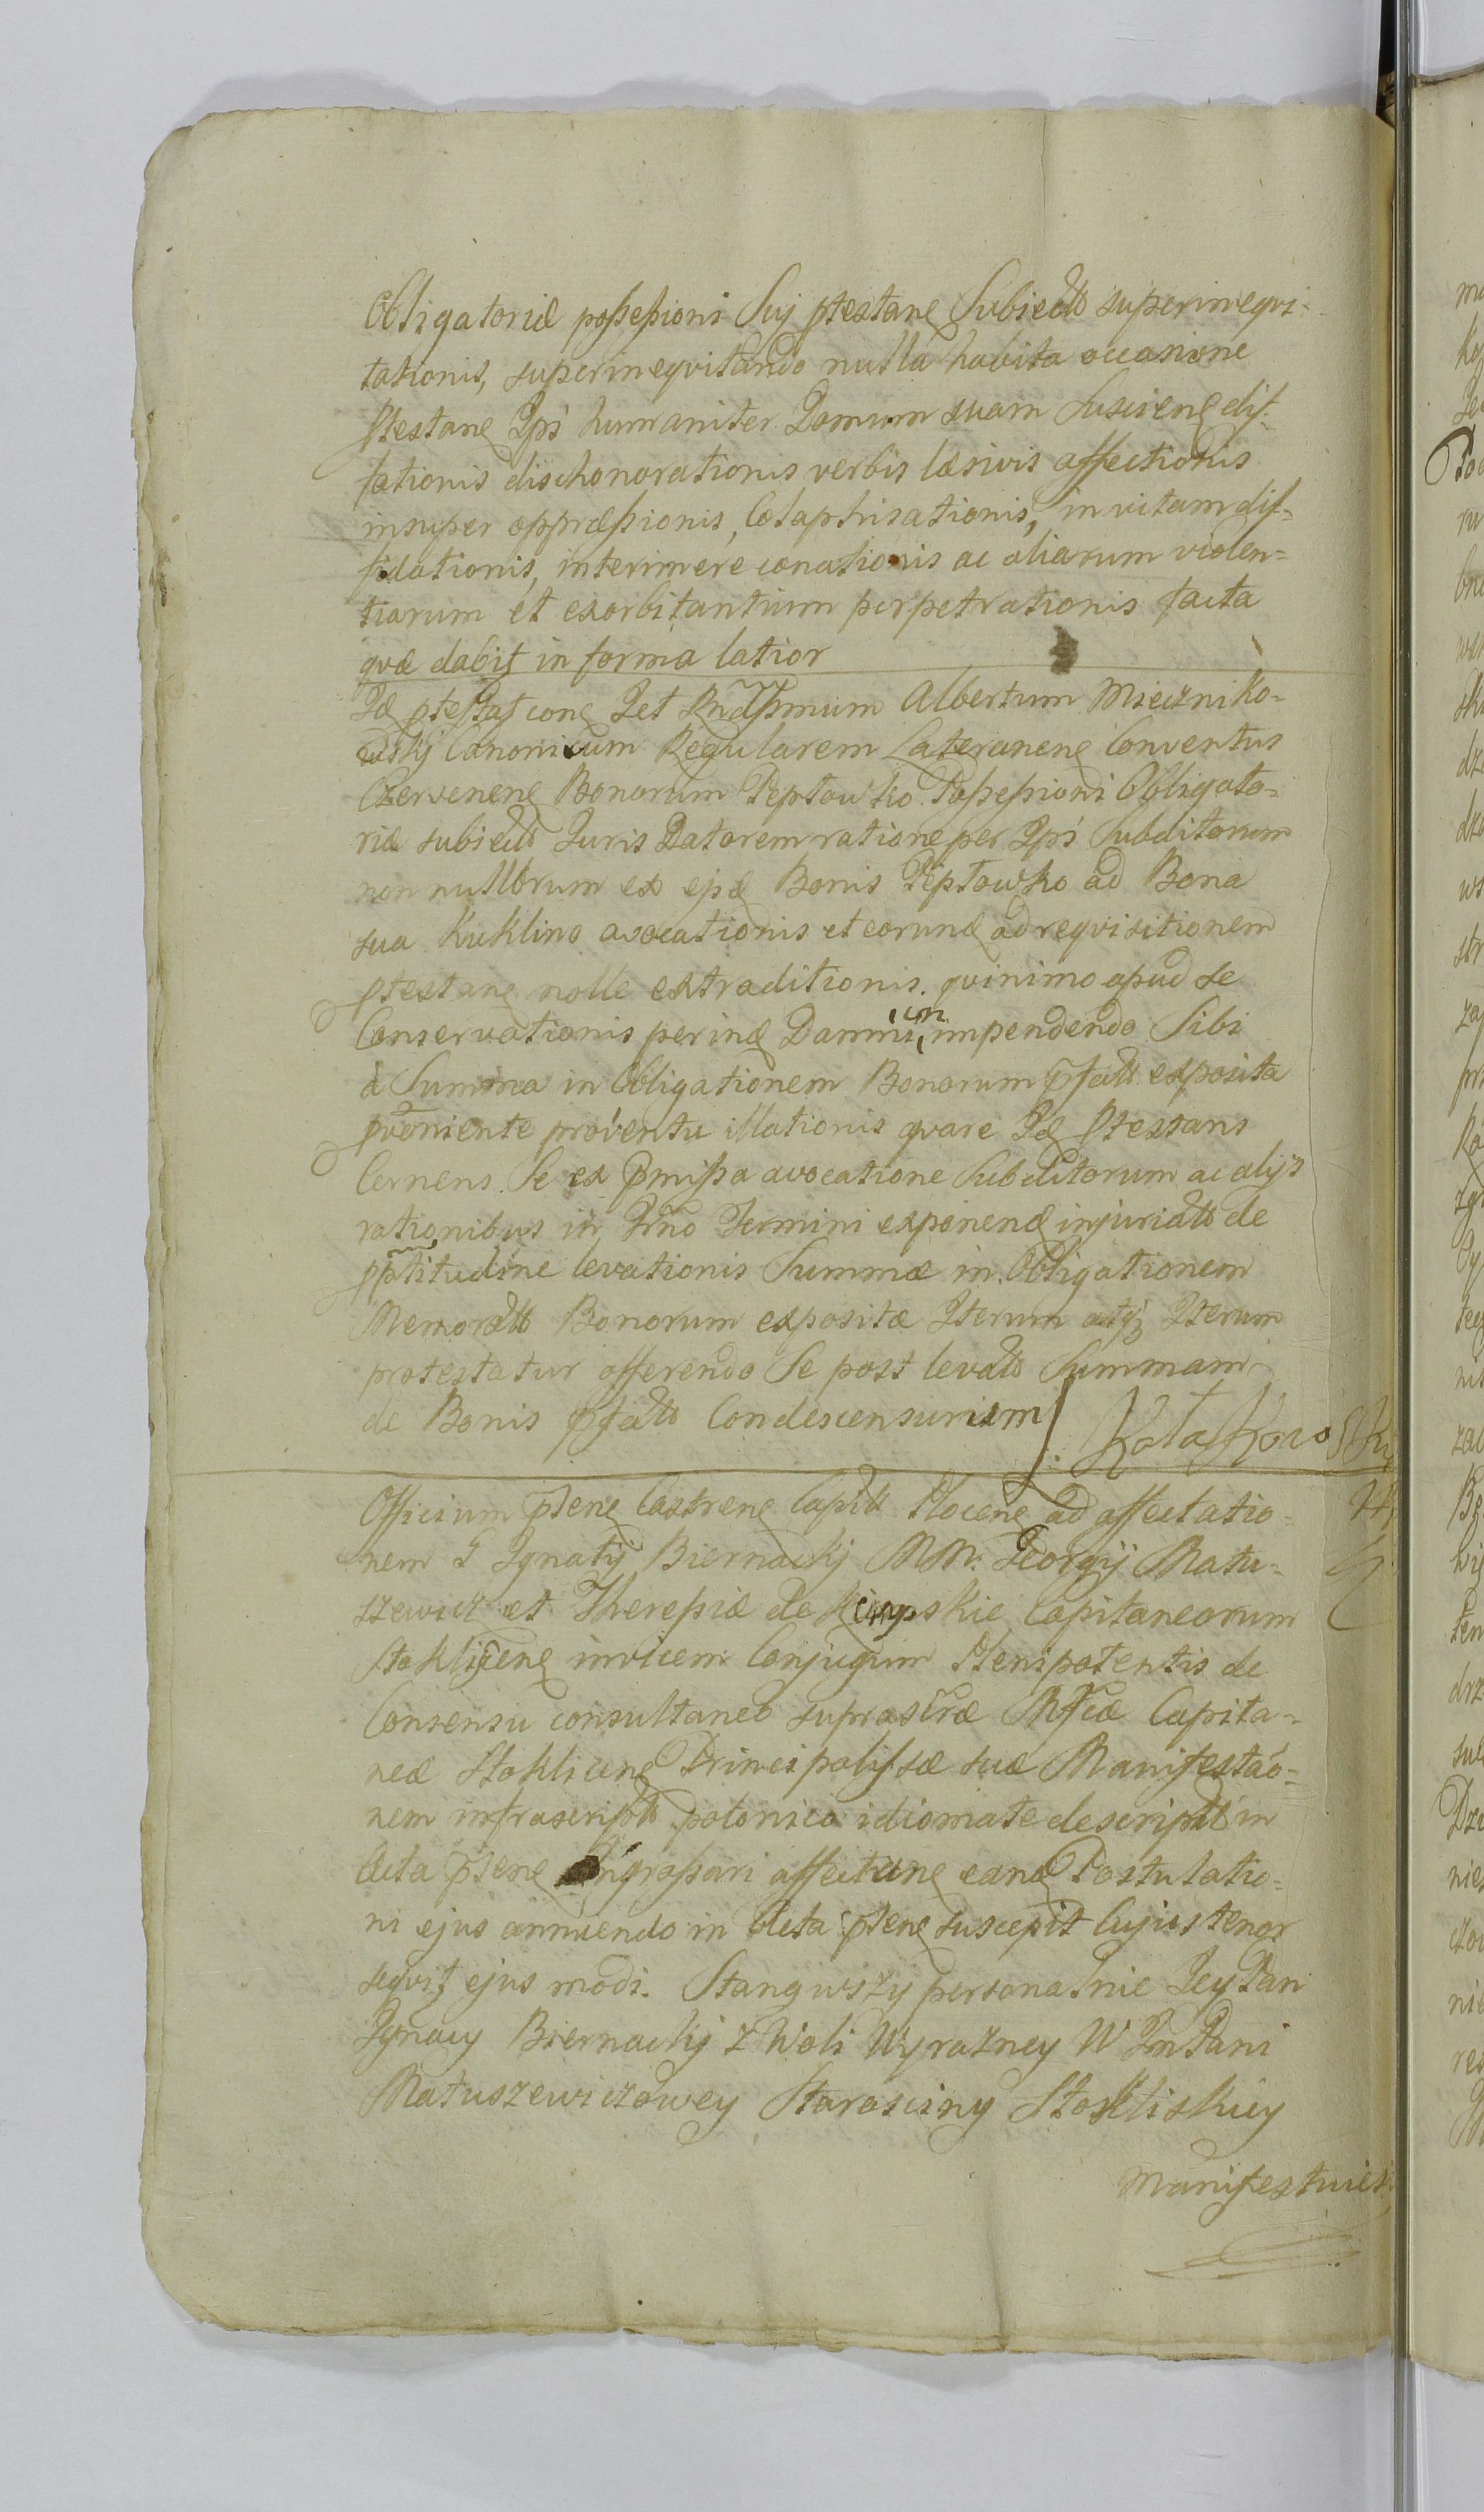 Obligatoriæ possessioni Suj ptestane Subiectt superineqvi-
tationis, superineqvitando nulla habita occasione
ptestane Ipsi humaniter Domum suam Suscipiene dif-
fationis dischonorationis verbis læsivis affectionis
insuper oppræssionis, Cotaphisationis, in vitam dif-
fidationis, interimere conationis ac aliarum violen-
tiarum et exorbitantium perpetrationis facta
qvæ dabit in forma latior
Id ptestat cone Albertum Mieczniko-
wskij Canonicum Regularem Lateranene Conventus
Czervenene Bonorum Peptowko Possessioni Obligato-
riæ subiectt Juris Datorem ratione per Ipsi Subditorum
non nullorum ex ejsd Bonis Peptowko ad Bona
sua Kuklino avocationis et eorund ad reqvisitionem
ptestane nolle extraditionis qvinimo apud se
Conservationis perind Damni um impendendo Sibi
à Summa in Obligationem Bonorum pfatt exposita
pveniente proventu illationis qvare Id Ptestans
Cernens Se ex pmissa avocatione Subditorum ac alijs
rationibus in Termini exponend injuriatt de
pptitudine levationis Summæ in Obligationem
Memoratt Bonorum expositæ Iterum atq Iterum
protestatur offerendo Se post levatt Summam
de Bonis pfatt Condescensurum
Officium Ptene Castrene Capitt Plocene ad affectatio-
nem G Ignatij Biernackij MM. Georgij Matu-
szewicz et Theressiæ de Capitaneorum
Stoklicene invicem Conjugum Plenipotentis de
Consensu consultaneo suprascræ Mfcæ Capita-
neæ Stoklicene Principalissæ suæ Manifestaó-
nem infrascriptt polonico idiomate descriptt in
Acta Ptene Ingrossari affectane eand Postulatio-
ni ejus annuendo in Acta Ptene suscepit Cujus tenor
seqvit ejus modi. Stanąwszy personalnie Jey Pan
Ignacy Biernackij z Woli Wyrazney W Jm Pani
Matuszewiczowey Starosciny Stokliskiey
Manifestuie